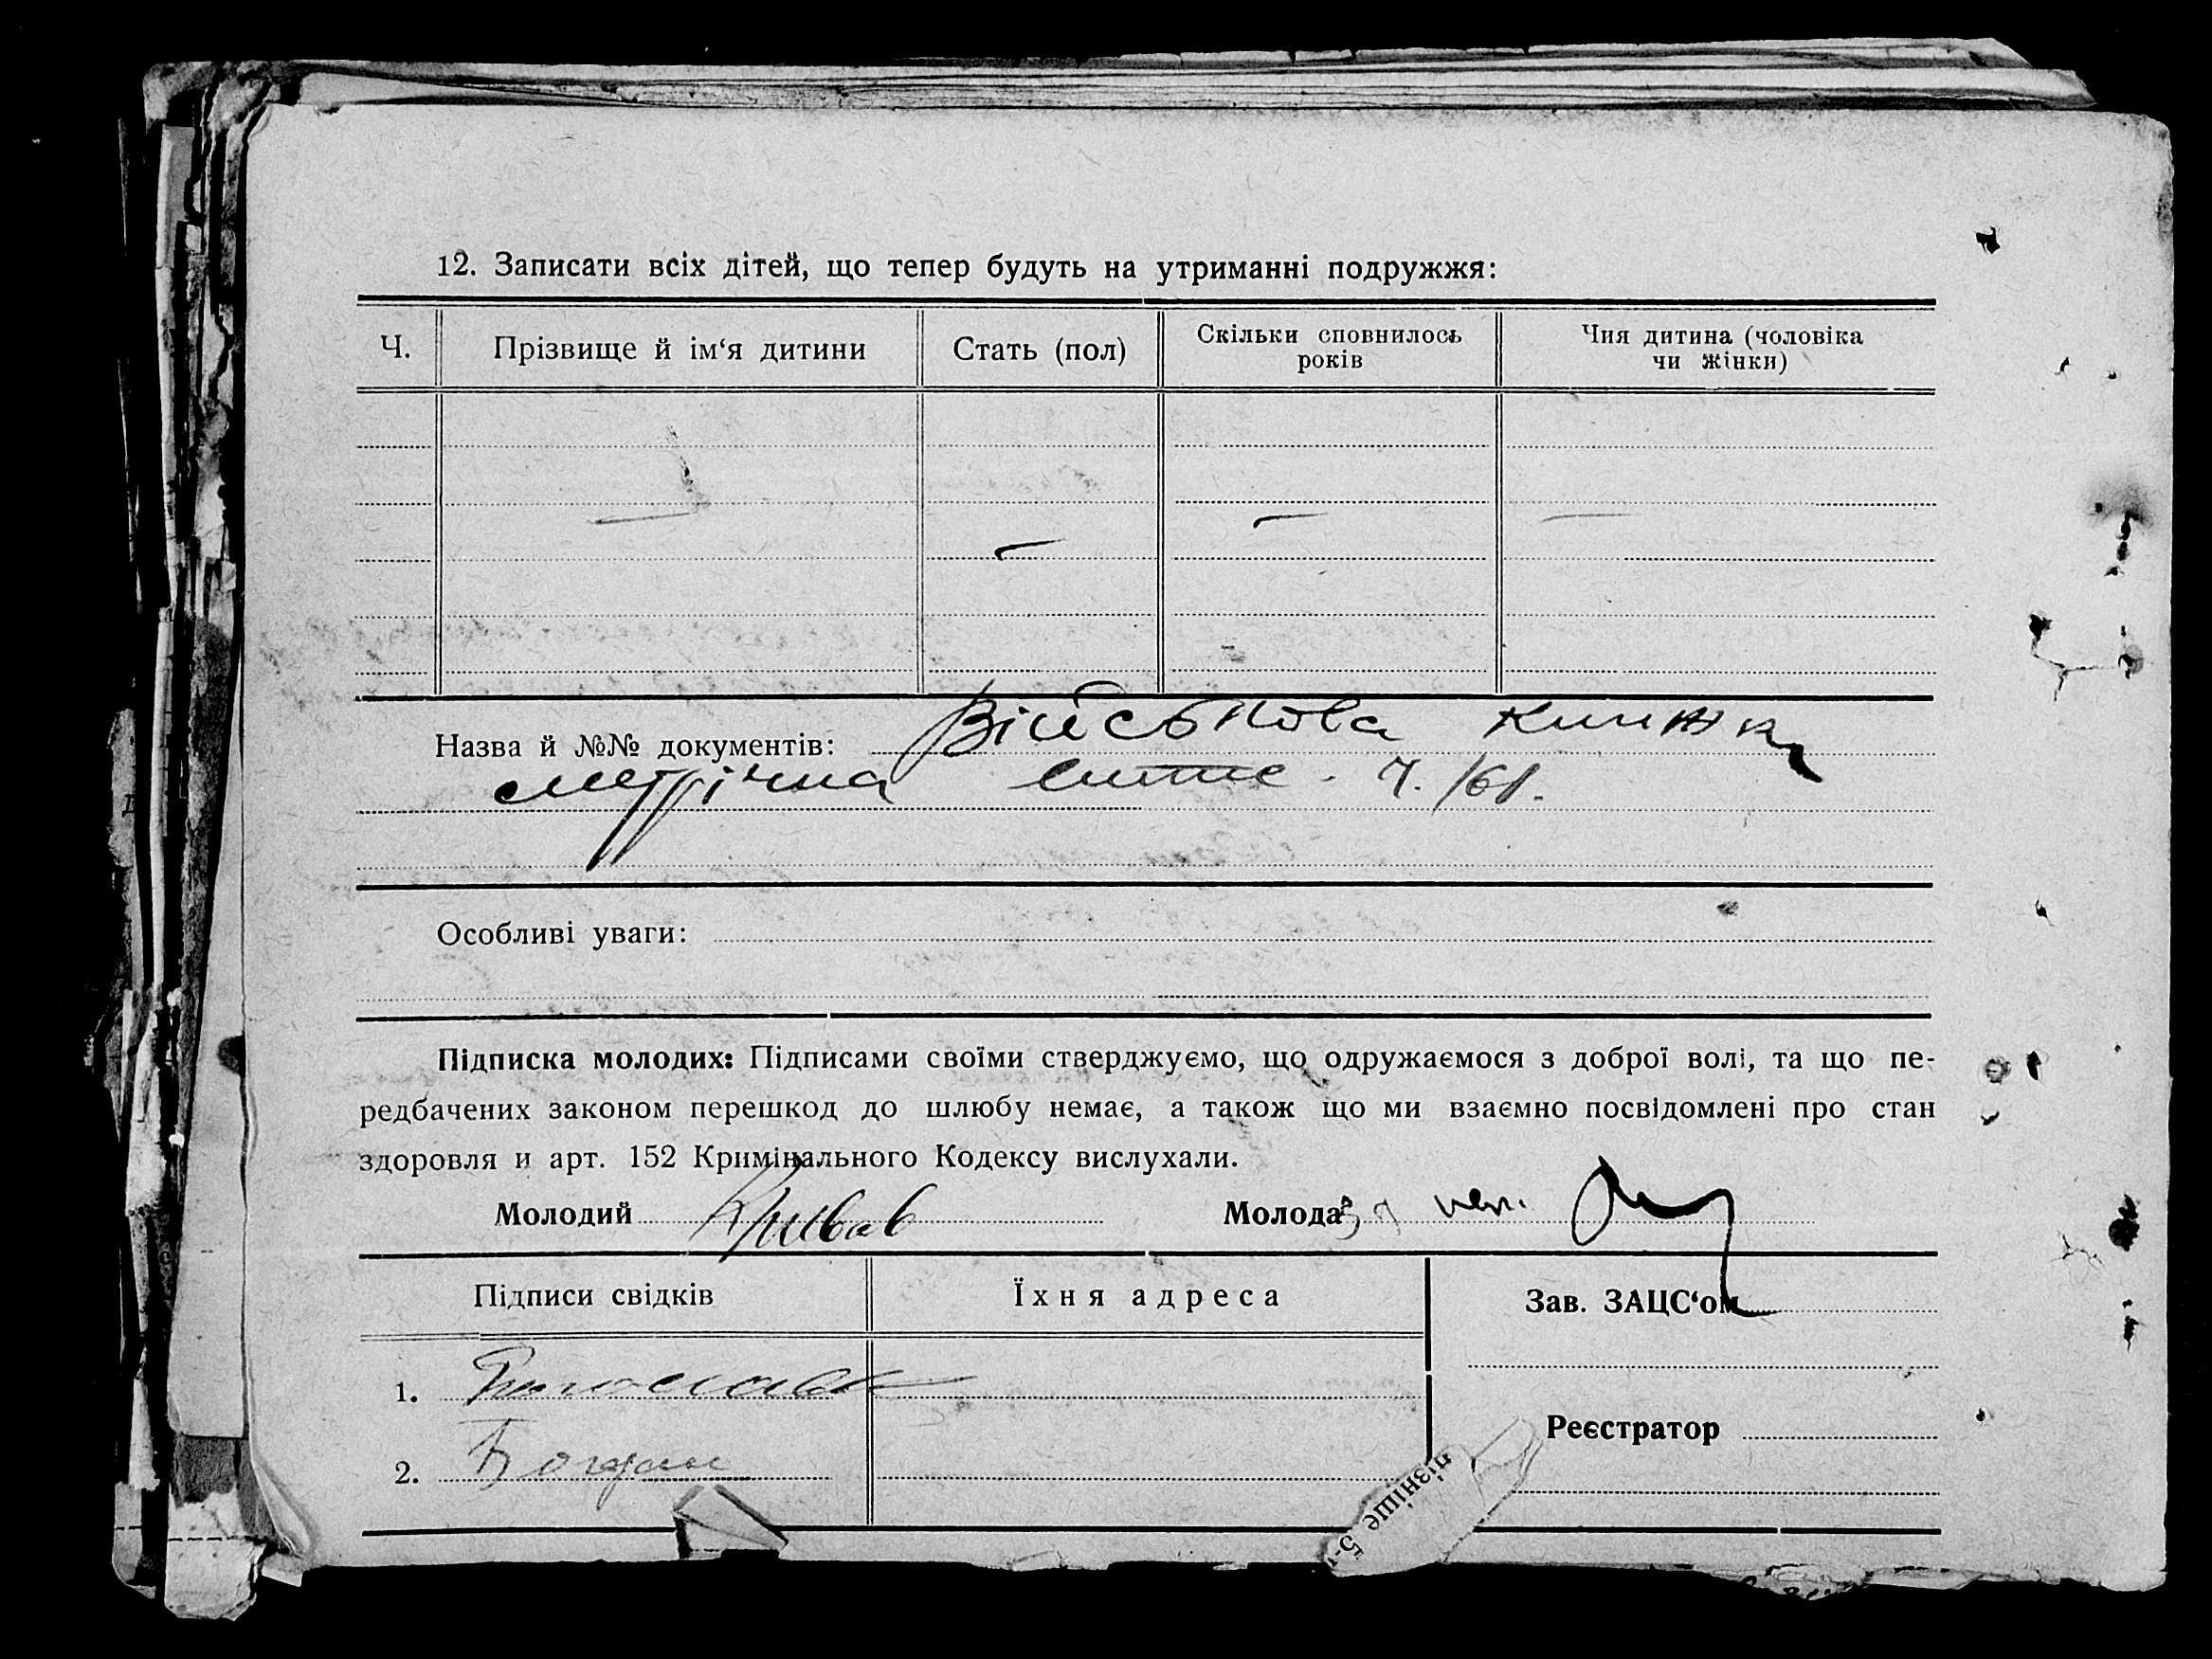 12. Записати всіх дітей, що тепер будуть на утриманні подружжя:
Ч.
Прізвище й ім‘я дитини
Стать (пол)
Скільки сповнилось
років
Чия дитина (чоловіка
чи жінки)
Назва й №№ документів: Військова книжка
метрічна 7./61.
Особливі уваги:
Підписка молодих: Підписами своїми стверджуємо, що одружаємося з доброї волі, та що пе-
редбачених законом перешкод до шлюбу немає, а також що ми взаємно посвідомлені про стан
здоровля и арт. 152 Кримінального Кодексу вислухали.
Молодий
Молода
Підписи свідків
Їхня адреса
Зав. ЗАЦС‘ом
1.
Реєстратор
2. Богдан
пізніше 5-